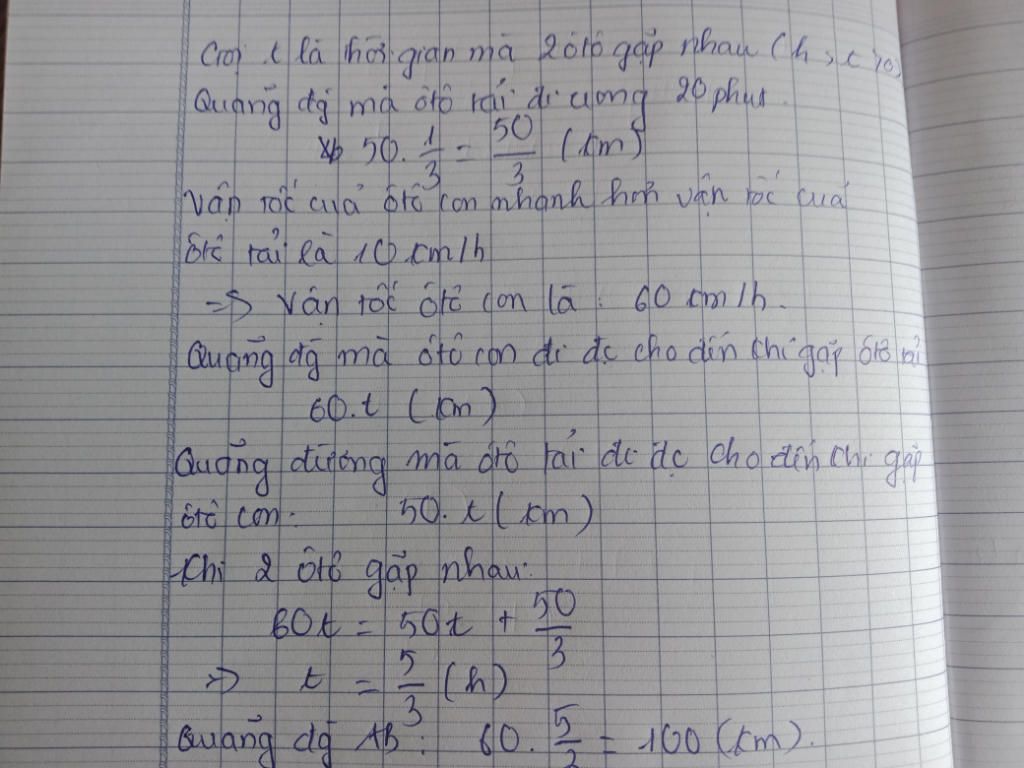 Gọi t là thời gian mà 2 ôtô gặp nhau (h, t > 0)
Quãng đg mà ôtô tải đi trong 20 phút.
50. 1/3 = 50/3 (km)
Vận tốc của ôtô con nhanh hơn vận tốc của
ôtô tải là 10 km/h
=> Vận tốc ôtô con là : 60 km/h.
Quãng đg mà ôtô con đi đc cho đến khi gặp ôtô tải
60.t (km)
Quãng đường mà ôtô tải đi đc cho đến khi gặp
ôtô con: 50.t (km)
Khi 2 ôtô gặp nhau:
60t = 50t + 50/3
=> t = 5/3 (h)
Quãng đg AB : 60 . 5/3 = 100 (km).